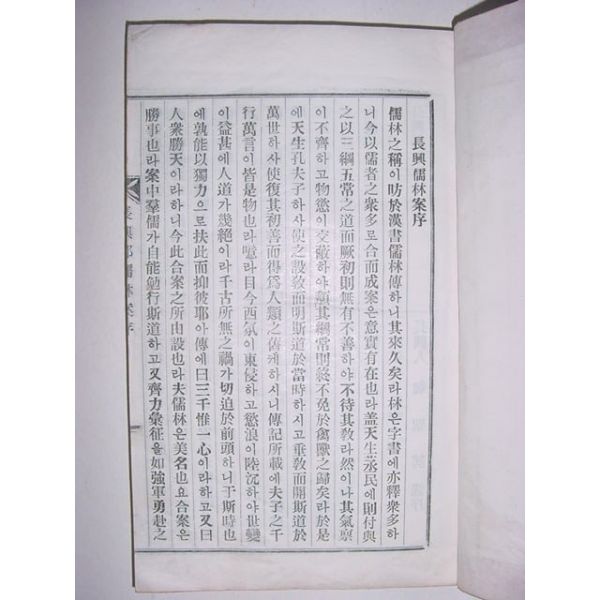 長興儒林案序
儒林之稱이昉於漢書儒林傳하니其來久矣라林은字書에亦釋衆多하
니今以儒者之衆多로合而成案은意實有在也라盖天生蒸民에則付與
之以三綱五常之道而厥初則無有不善하야不待其敎라然이나其氣禀
이不齊하고物慾이交蔽하야頹其綱常則終不免於禽獸之歸矣라於是
에天生孔夫子하사使之設敎而明斯道於當時하시고垂敎而開斯道於
萬世하사使復其初善而得爲人類之舊케하시니傳記所載에夫子之千
行萬言이皆是物也라噫라目今西氣이東侵하고慾浪이陸沉하야世變
이益甚에人道가幾絶이라千古所無之禍가切迫於前頭하니于斯時也
에孰能以獨力으로扶此而抑彼耶아傳에曰三千惟一心이라하고又曰
人衆勝天이라하니今此合案之所由設也라夫儒林은美名也요合案은
勝事也라案中羣儒가自能勉行斯道하고又齊力彙征을如強軍勇赴之
長興郡儒林案序